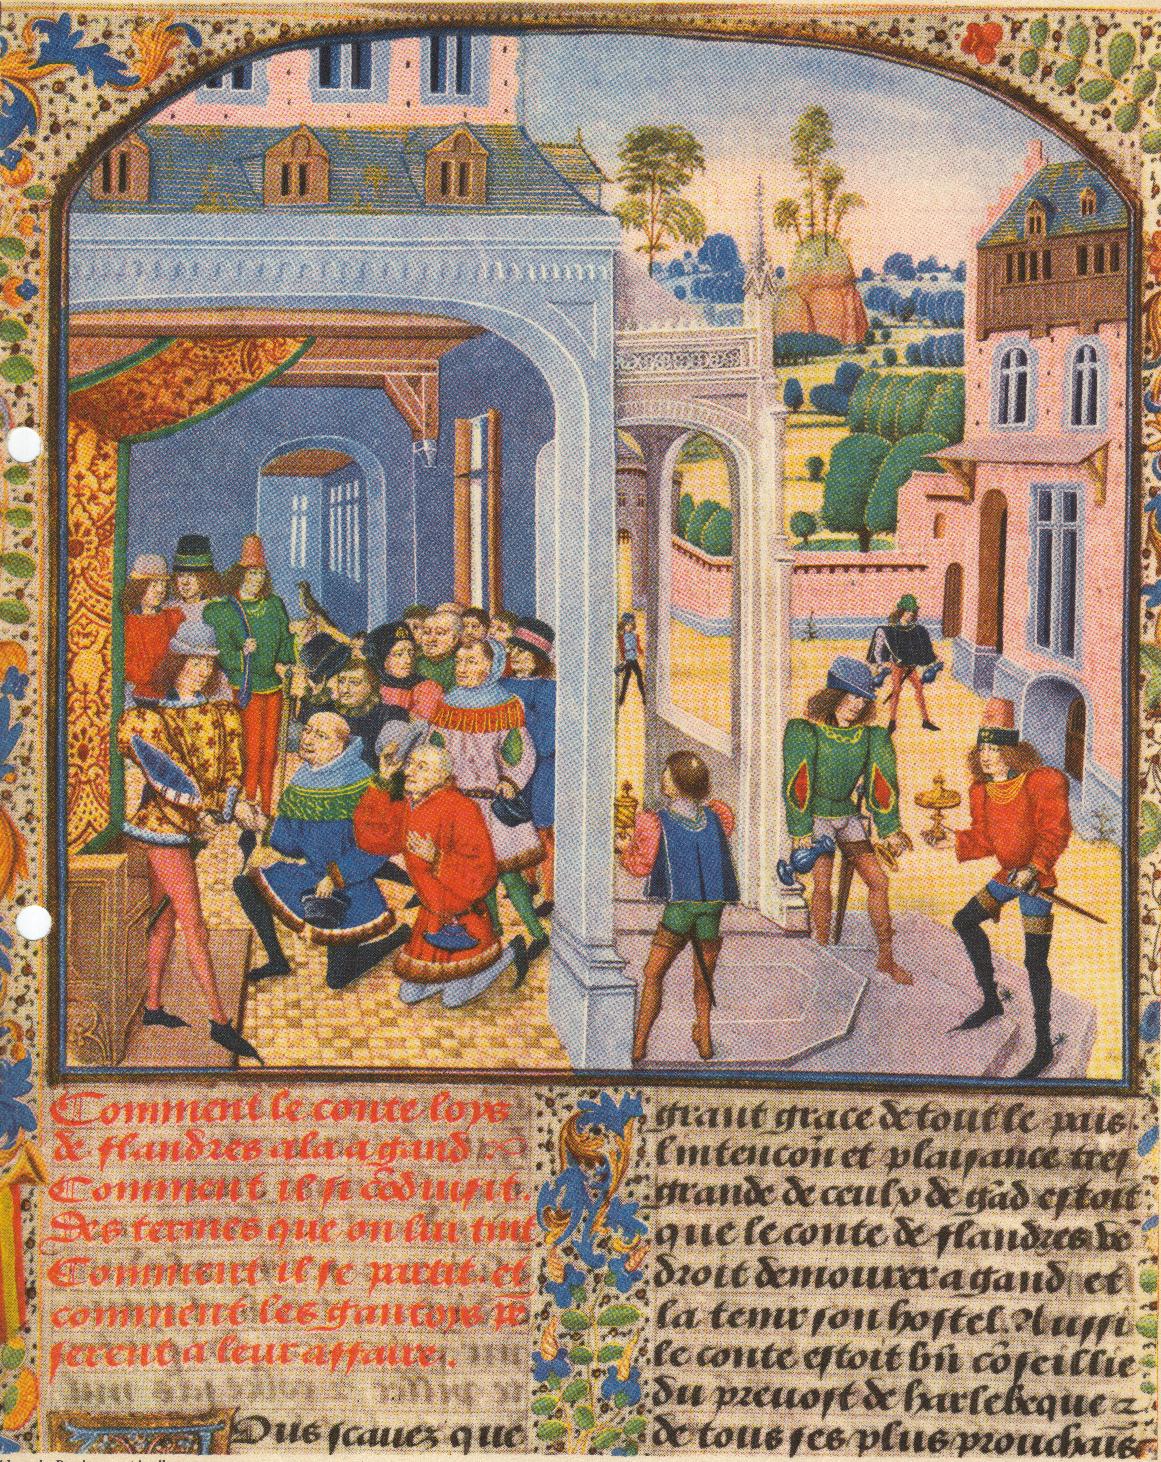 Comment le conte loys
de flandres ala a gand
Comment il se cōduisit.
Des termes que on lui tint
Comment il se partit. et
comment les gantois se
firent a leur affaire.
Vous scauez que
grant grace de tout le pais
lintencōn et plaisance tres
grande de ceulx de gād estoit
que le conte de flandres vē
droit demourer a gand et
la tenir son hostel. Aussi
le conte estoit bn̄ cōseillie
du preuost de harlebeque z
de tous ses plus prouchains